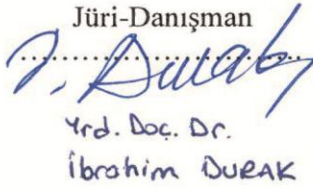 Jüri-Danışman
Yrd. Doç. Dr.
İbrahim DURAK